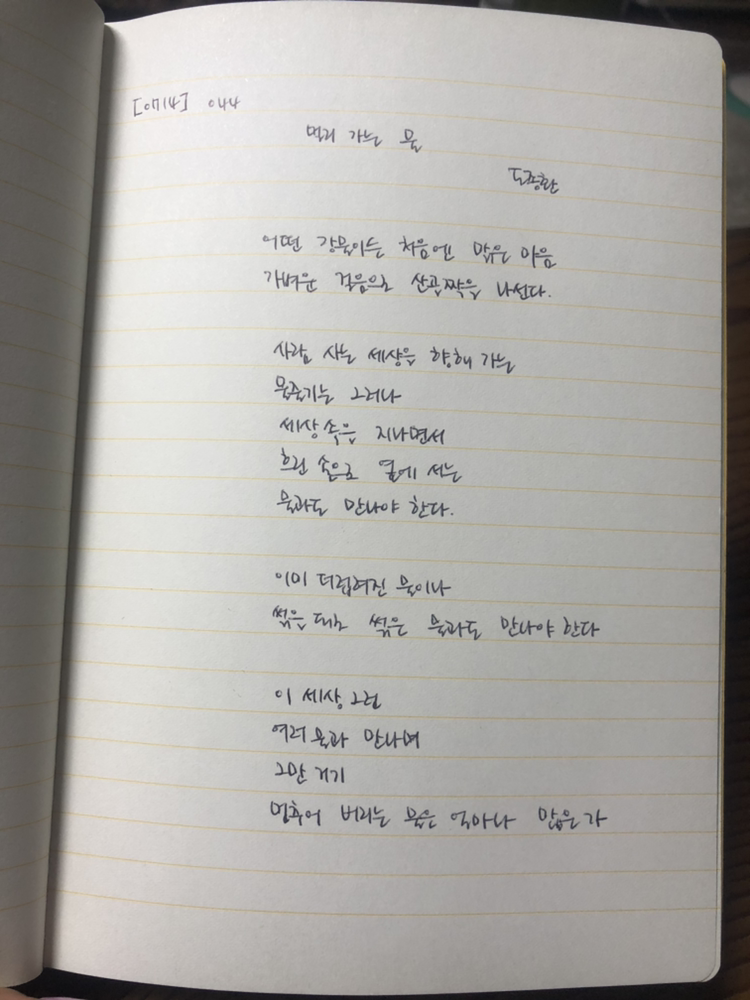 [0714] 044
멀리 가는 물
도종환
어떤 강물이든 처음엔 맑은 마음
가벼운 걸음으로 산골짝을 나선다.
사람 사는 세상을 향해 가는
물줄기는 그러나
세상 속을 지나면서
흐린 손으로 옆에 서는
물과도 만나야 한다.
이미 더럽혀진 물이나
썩을대로 썩은 물과도 만나야 한다
이 세상 그런
여러 물과 만나며
그만 거기
멈추어 버리는 물은 얼마나 많은가